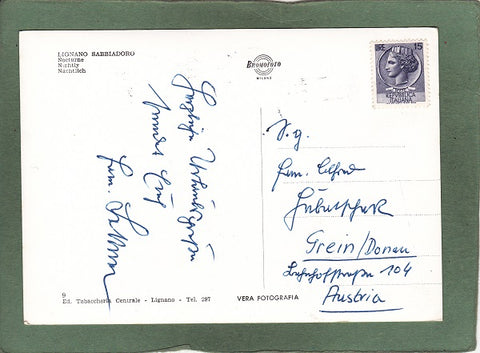 LIGNANO SABBIADORO
Nocturne
Nightly
Nächtlich
Bromofoto
MILANO
LIRE 15
REPUBBLICA
ITALIANA
Herzliche Urlaubsgrüße
sendet Euch
Fam.
S.g.
Fam. Alfred
Grein/Donau
Bahnhofstraße 104
Austria
9
Ed. Tabaccheria Centrale - Lignano - Tel. 287
VERA FOTOGRAFIA